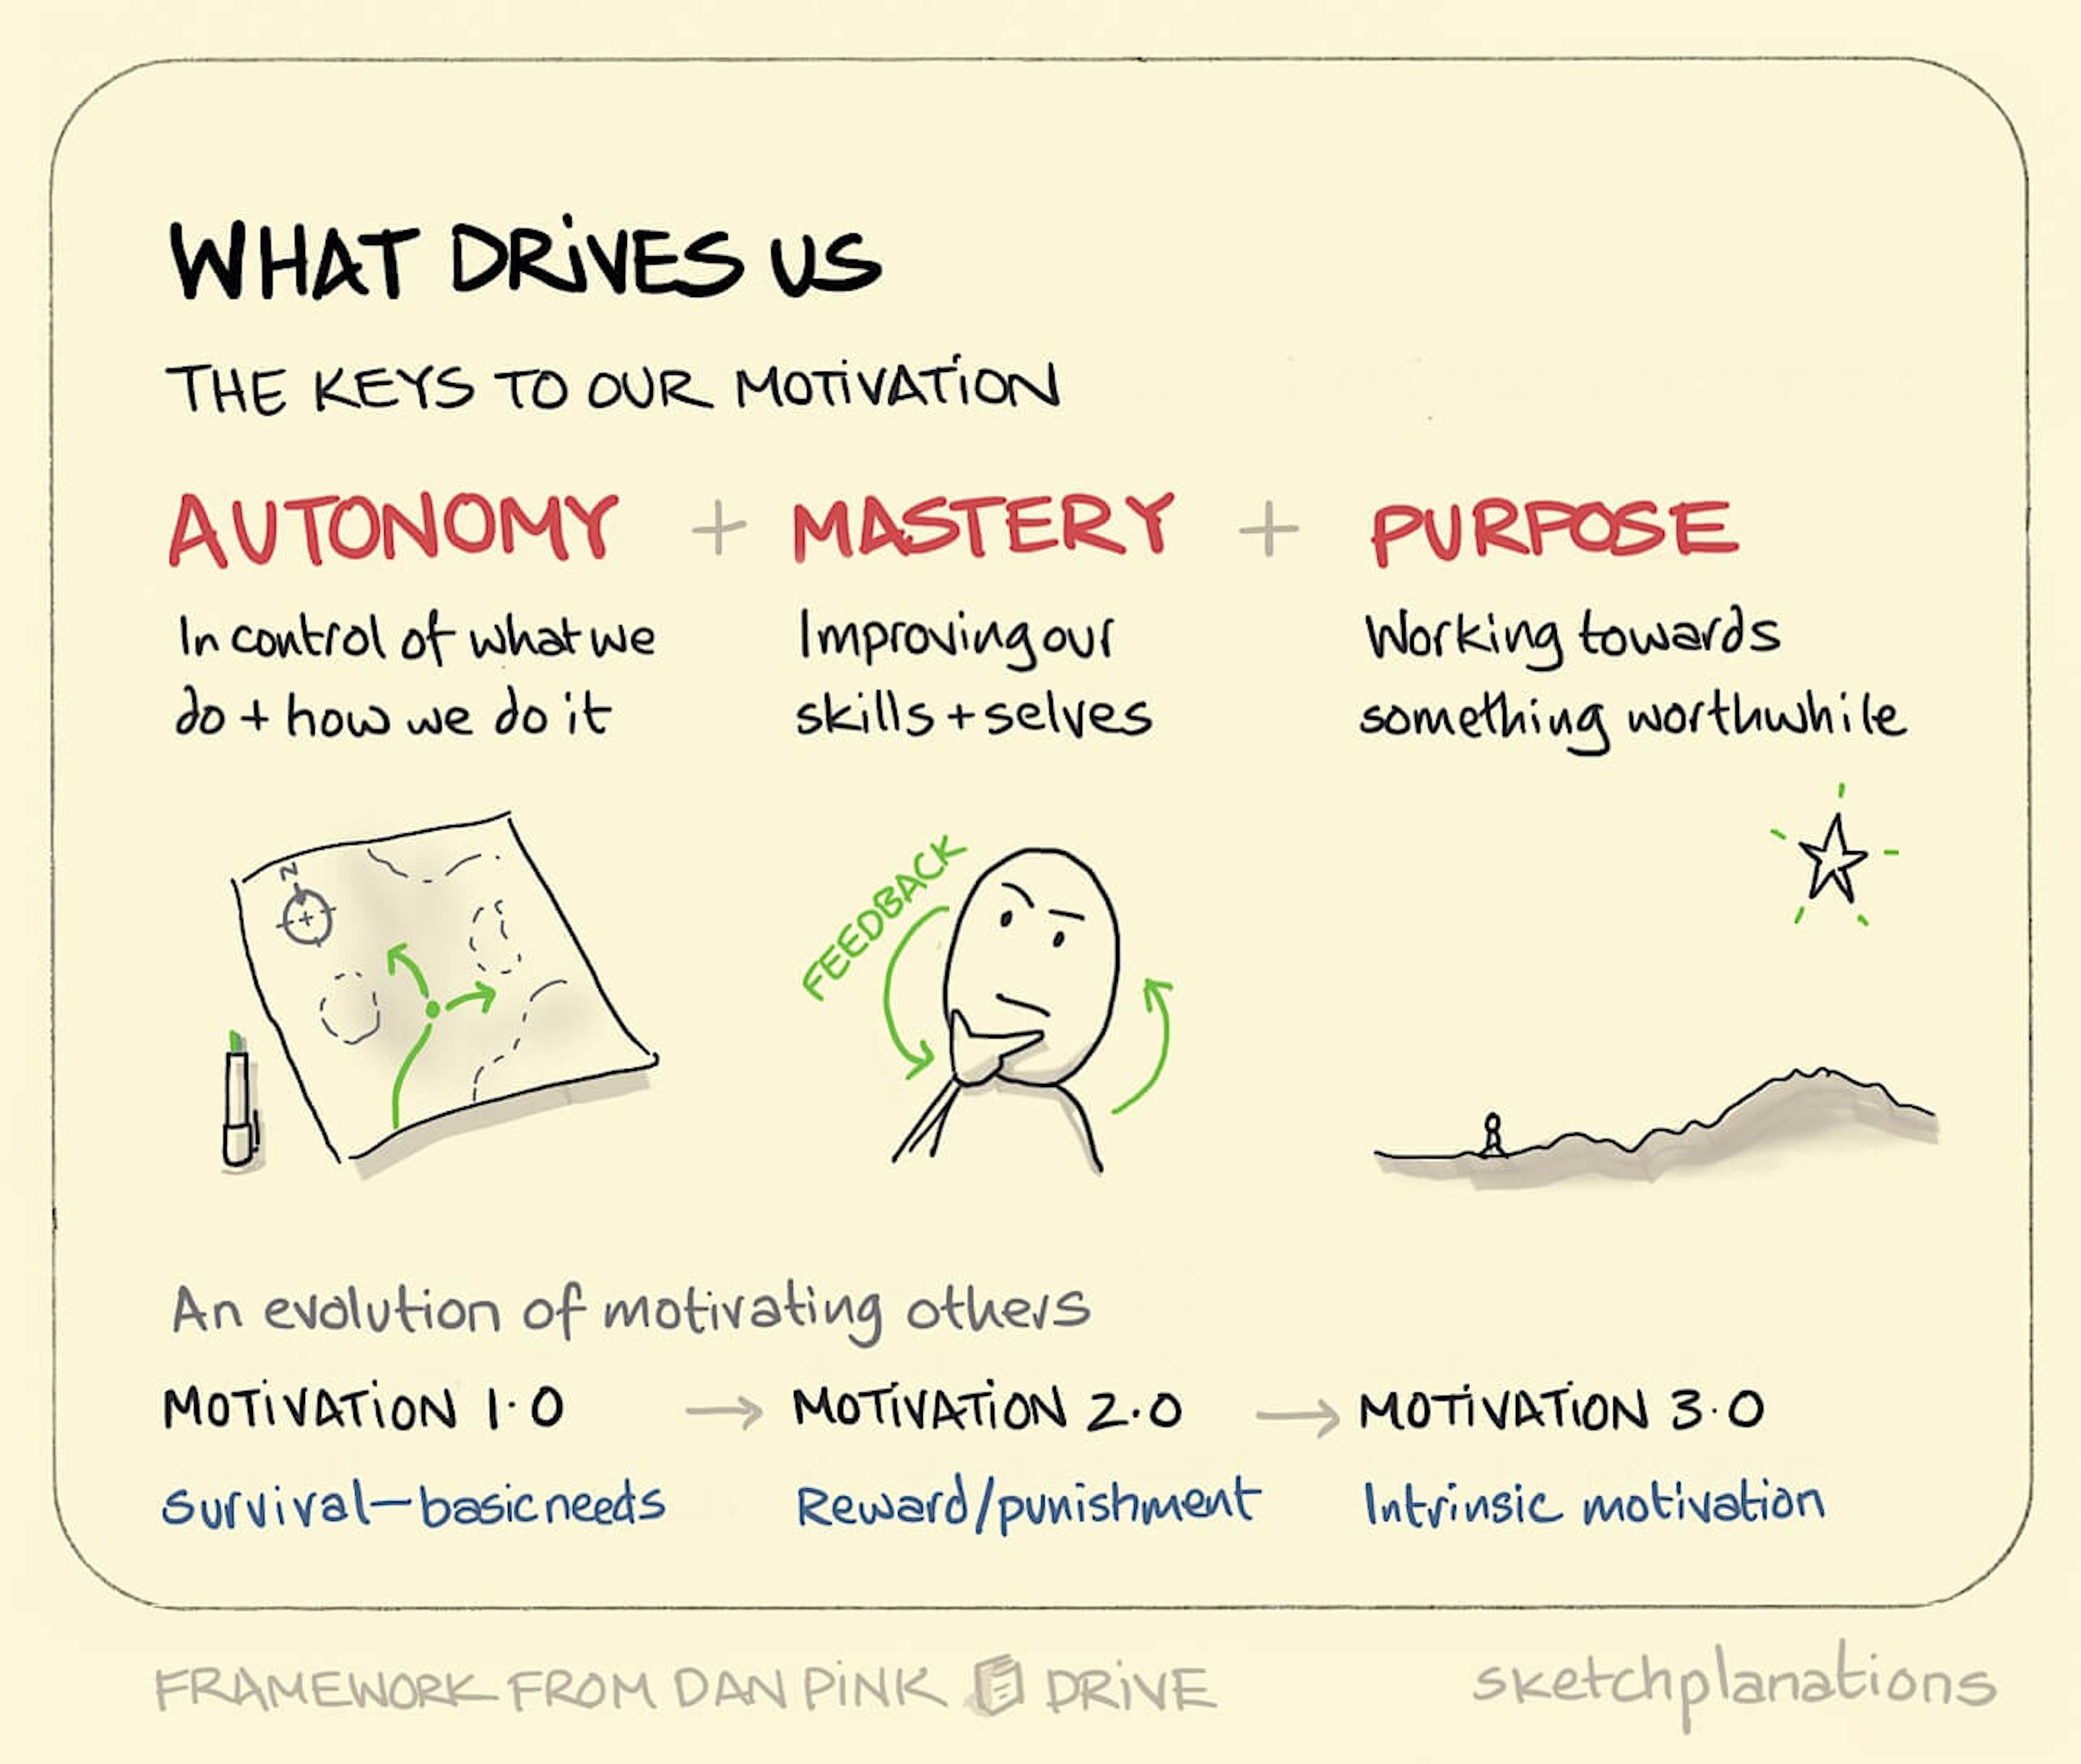 WHAT DRiVES US
THE KEYS TO OUR MOTiVATiON
AUTONOMY + MASTERY + PURPOSE
In control of what we do + how we do it
Improving our skills + selves
Working towards something worthwhile
N
FEEDBACK
An evolution of motivating others
MOTiVATiON 1·0 → MOTiVATiON 2·0 → MOTiVATiON 3·0
Survival – basic needs
Reward/punishment
Intrinsic motivation
FRAMEWORK FROM DAN PiNK DRiVE
sketchplanations